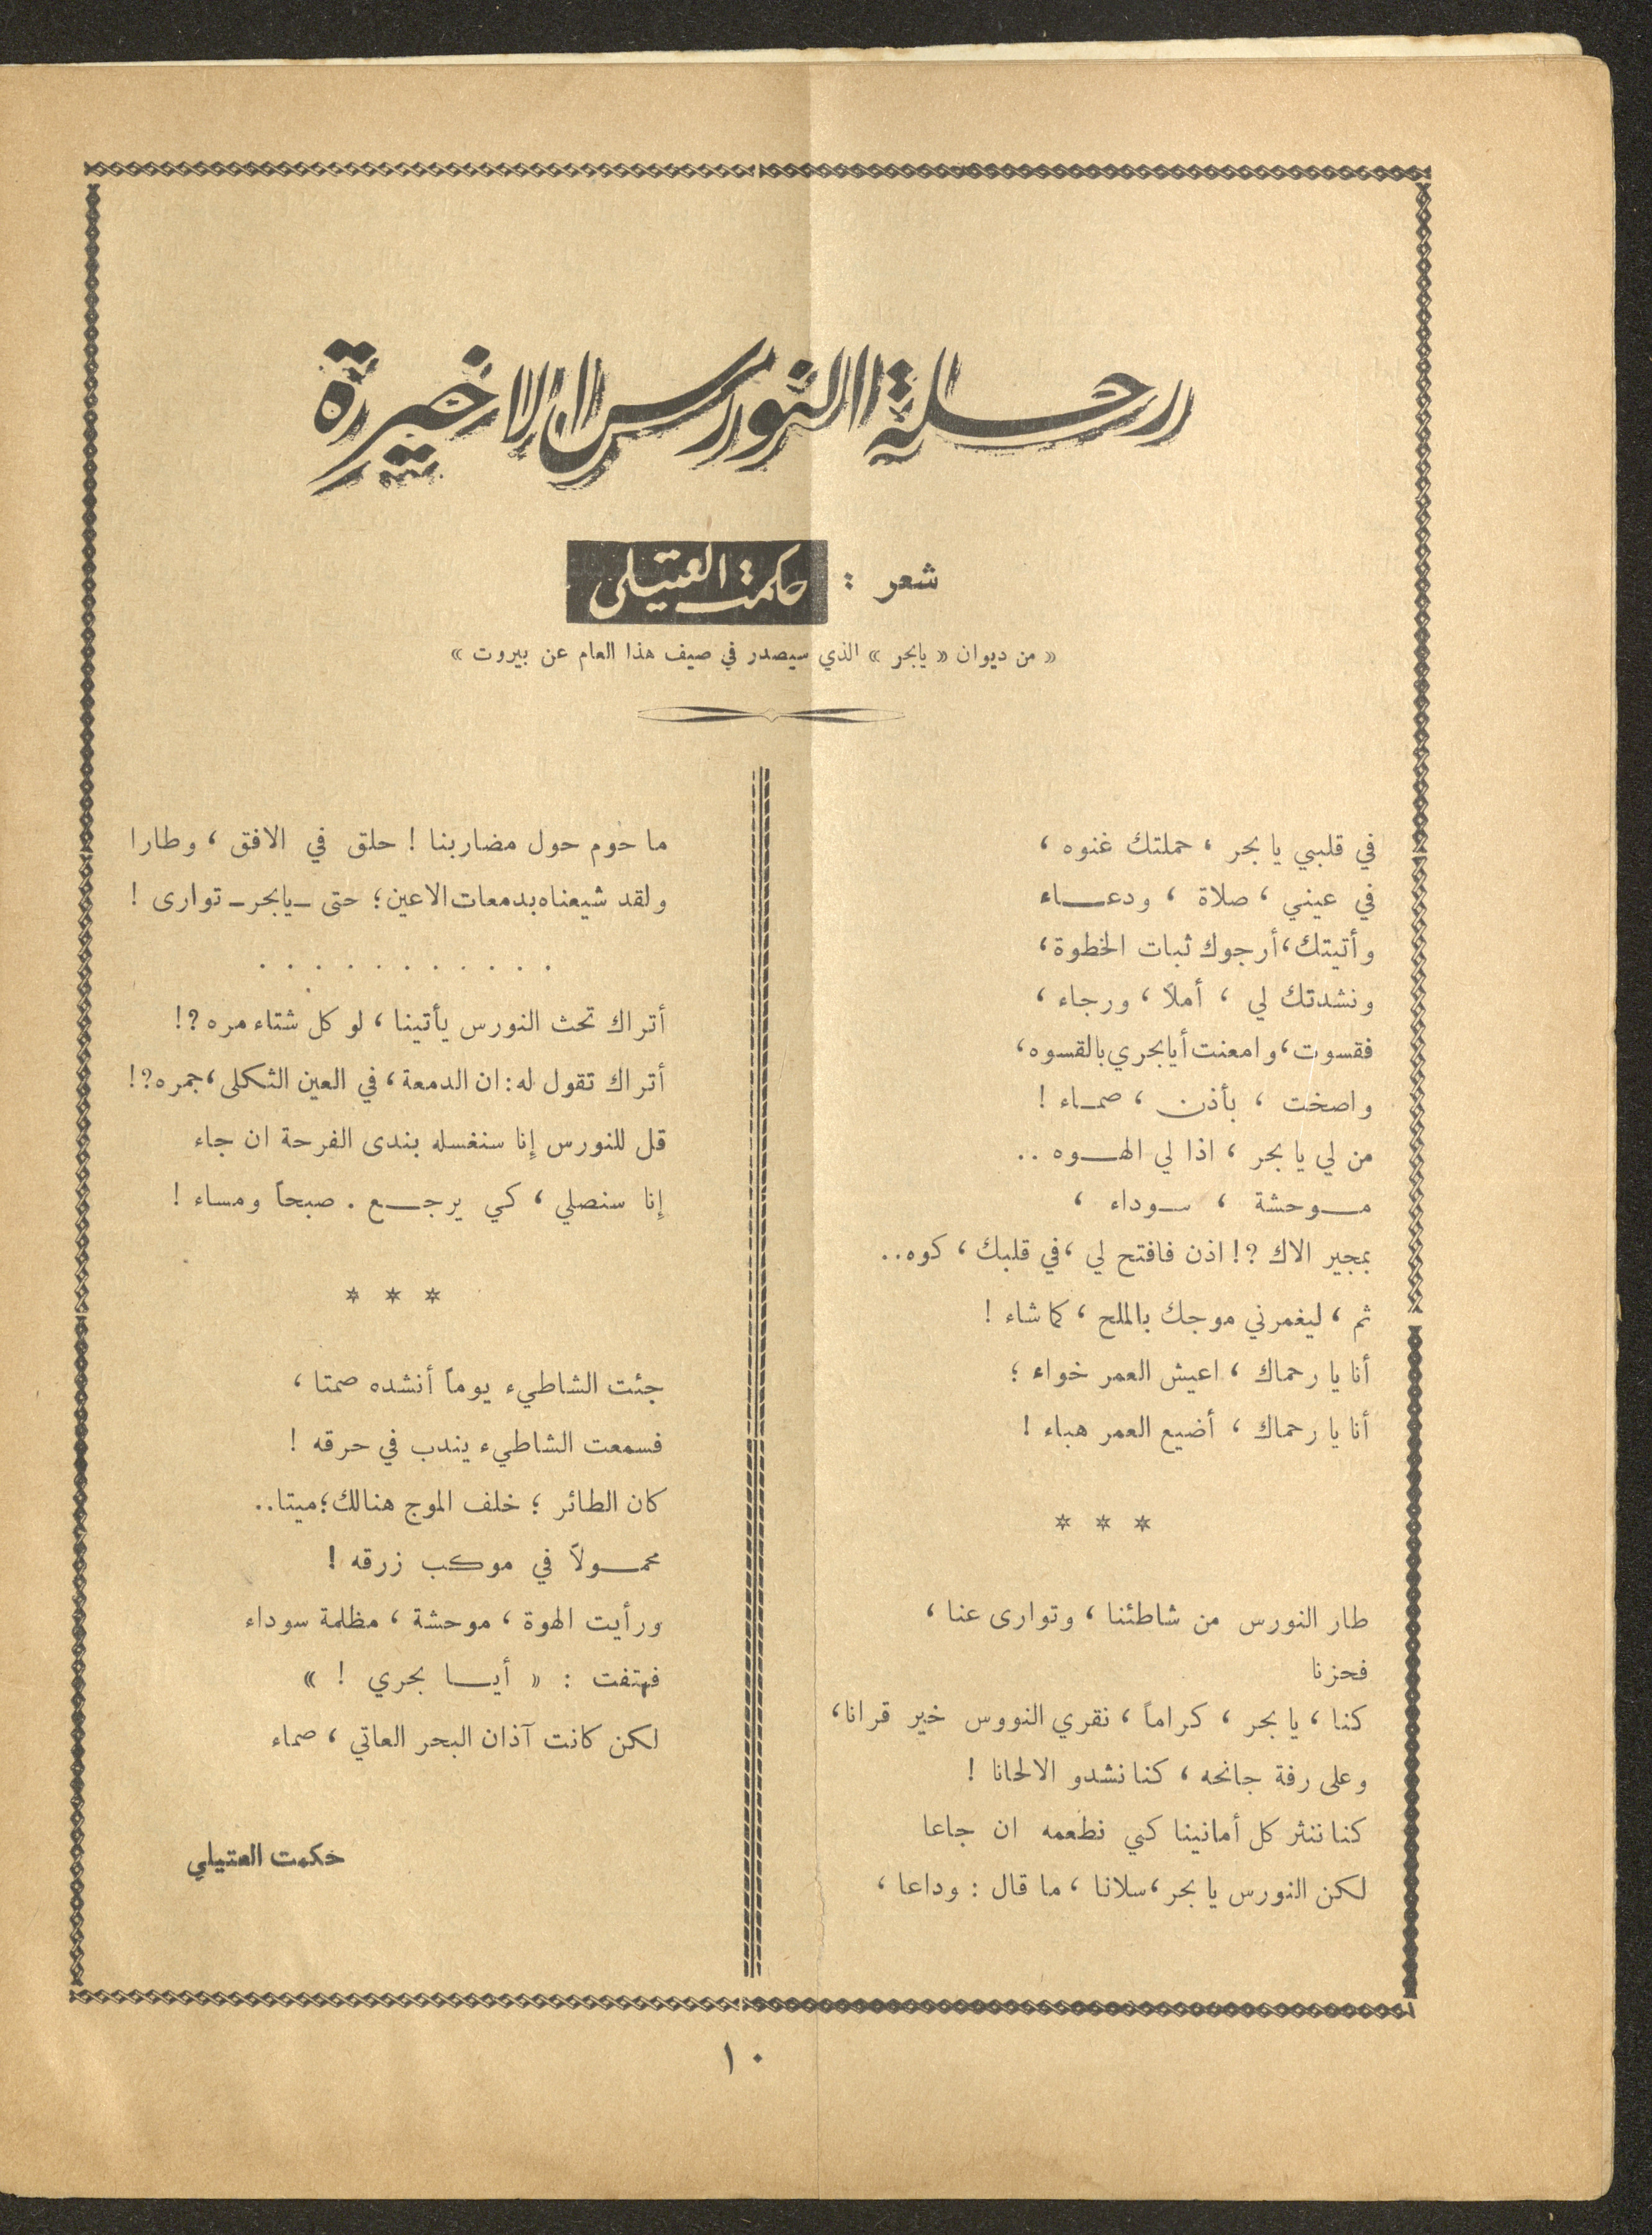 رحلة النورس الاخيرة
شعر : حكمت العتيلي
« من ديوان « يابحر » الذي سيصدر في صيف هذا العام عن بيروت »
في قلبي يا بحر ، حملتك غنوه ،
في عيني ، صلاة ، ودعاء
وأتيتك، أرجوك ثبات الخطوة،
ونشدتك لي ، أملاً ، ورجاء ،
فقسوت، وامعنت أيابحري بالقسوه،
واصخت ، بأذن ، صماء !
من لي يا بحر ، اذا لي الهوه ..
موحشة ، سوداء ،
بمجير الاك ?! اذن فافتح لي ،في قلبك ، كوه..
ثم ، ليغمرني موجك بالملح ، كما شاء !
أنا يا رحماك ، اعيش العمر خواء ؛
أنا يا رحماك ، أضيع العمر هباء !
* * *
طار النورس من شاطئنا ، وتوارى عنا ،
فحزنا
كنا ، يا بحر ، كراماً ، نقري النووس خير قرانا،
وعلى رفة جانحه ، كنا نشدو الالحانا !
كنا ننثر كل أمانينا كي نطعمه ان جاعا
لكن النورس يا بحر، سلانا ، ما قال : وداعا ،
ما حوم حول مضاربنا ! حلق في الافق ، وطارا
ولقد شيعناه بدمعات الاعين ؛ حتى ـ يابحر ـ توارى !
. . . . . . . . . . .
أتراك تحث النورس يأتينا ، لو كل شتاء مره ?!
أتراك تقول له : ان الدمعة ، في العين الثكلى ، جمره ?!
قل للنورس إنا سنغسله بندى الفرحة ان جاء
إنا سنصلي ، كي يرجع . صبحاً ومساء !
* * *
جئت الشاطيء يوماً أنشده صمتا ،
فسمعت الشاطيء يندب في حرقه !
كان الطائر ؛ خلف الموج هنالك ؛ ميتا..
محمولاً في موكب زرقه !
ورأيت الهوة ، موحشة ، مظلمة سوداء
فهتفت : « أيا بحري ! »
لكن كانت آذان البحر العاتي ، صماء
حكمت العتيلي
١٠